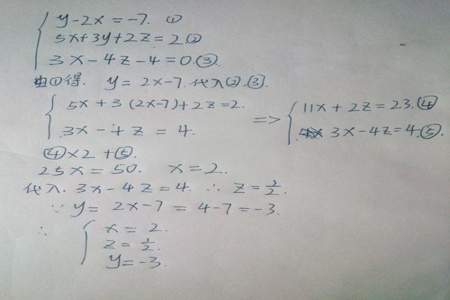 { y-2x=-7. ①
5x+3y+2z=2 ②
3x-4z-4=0. ③
由①得. y=2x-7. 代入②,③.
{ 5x+3(2x-7)+2z=2.
3x-4z=4.
=> { 11x+2z=23. ④
3x-4z=4. ⑤
④×2+⑤.
25x=50. x=2.
代入. 3x-4z=4 ∴ z=1/2.
∵ y=2x-7=4-7=-3.
∴ { x=2.
z=1/2.
y=-3